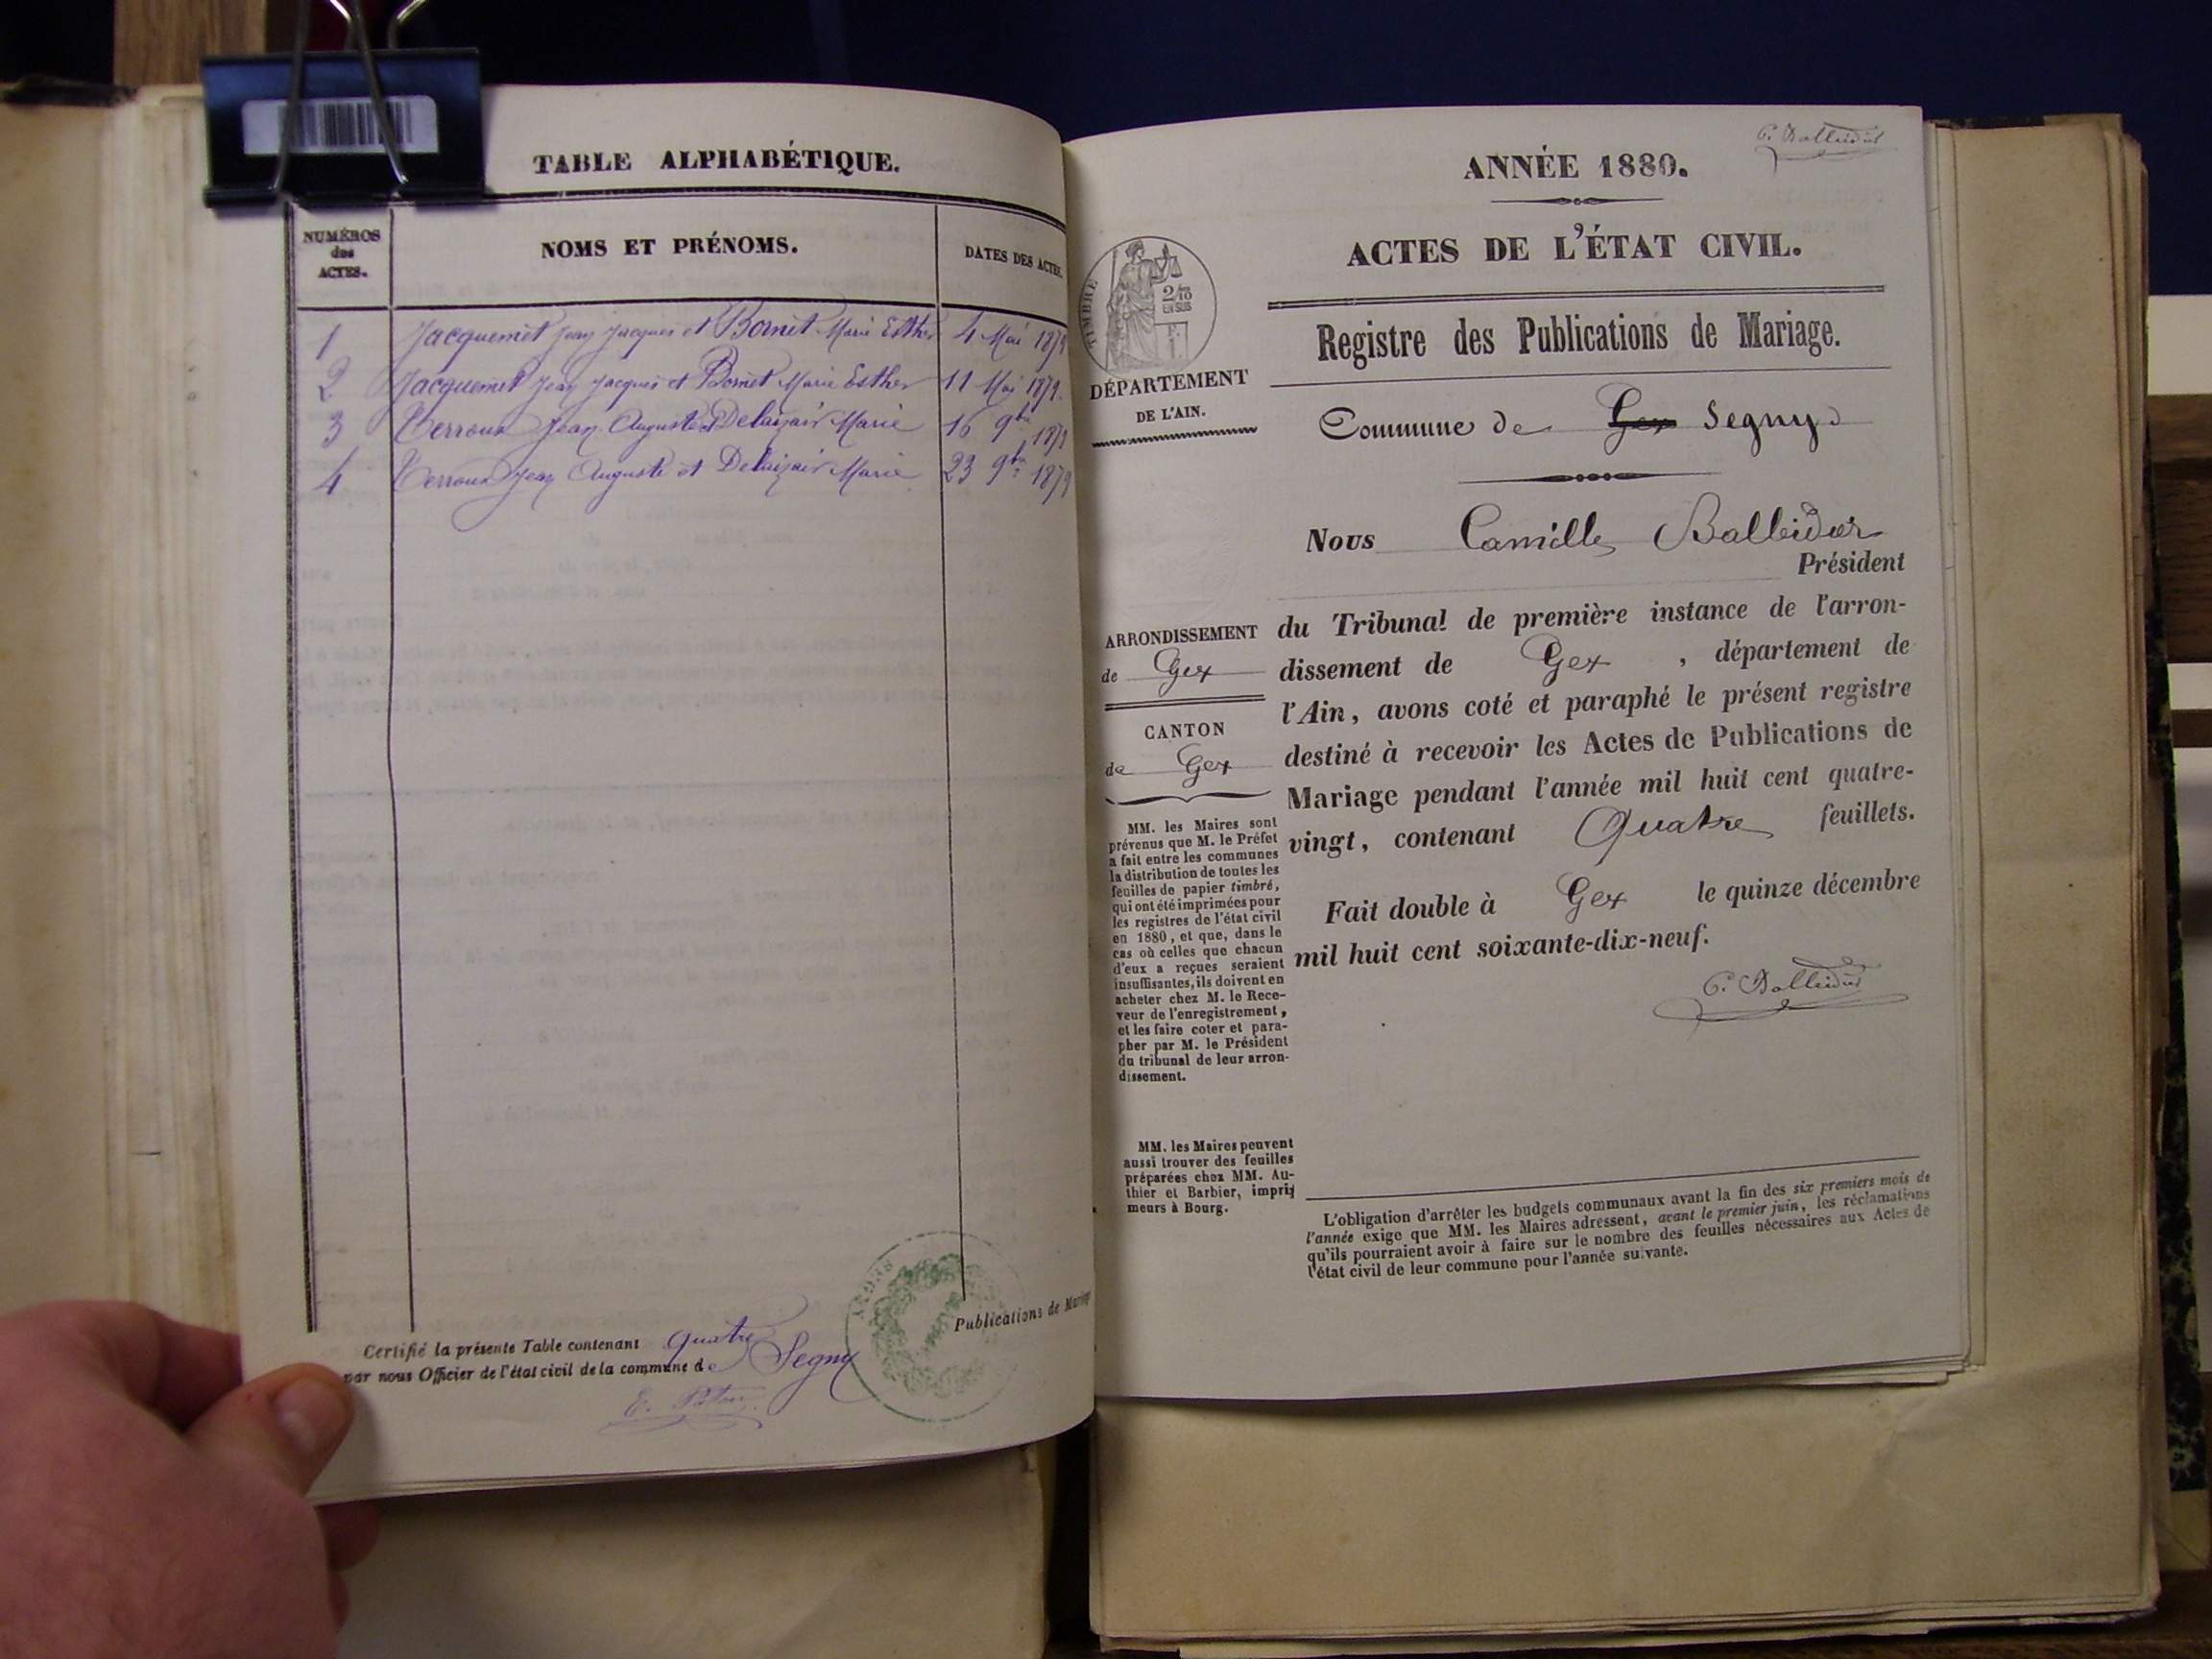 TABLE ALPHABÉTIQUE.
NUMÉROS
des
ACTES.
NOMS ET PRÉNOMS.
DATES DES ACTES.
1 Jacquemet Jean Jacques et Bornet Marie Esther 4 Mai 1879
2 Jacquemet Jean Jacques et Bornet Marie Esther 11 Mai 1879.
3 Jean Auguste et Marie 16 9bre 1879
4 Jean Auguste et Marie 23 9bre 1879
Certifié la présente Table contenant quatre
par nous Officier de l'état civil de la commune de Segny
Publications de Mariage
SEGNY
ANNÉE 1880.
ACTES DE L'ÉTAT CIVIL.
Registre des Publications de Mariage.
TIMBRE
2/10
EN SUS
DÉPARTEMENT
DE L'AIN.
Commune de Gex Segny
Nous Camille
Président
ARRONDISSEMENT
de Gex
CANTON
de Gex
du Tribunal de première instance de l'arron-
dissement de Gex , département de
l'Ain, avons coté et paraphé le présent registre
destiné à recevoir les Actes de Publications de
Mariage pendant l'année mil huit cent quatre-
vingt, contenant Quatre feuillets.
Fait double à Gex le quinze décembre
mil huit cent soixante-dix-neuf.
MM. les Maires sont
prévenus que M. le Préfet
a fait entre les communes
la distribution de toutes les
feuilles de papier timbré,
qui ont été imprimées pour
les registres de l'état civil
en 1880, et que, dans le
cas où celles que chacun
d'eux a reçues seraient
insuffisantes, ils doivent en
acheter chez M. le Rece-
veur de l'enregistrement,
et les faire coter et para-
pher par M. le Président
du tribunal de leur arron-
dissement.
MM. les Maires peuvent
aussi trouver des feuilles
préparées chez MM. Au-
thier et Barbier, impri
meurs à Bourg.
L'obligation d'arrêter les budgets communaux avant la fin des six premiers mois de
l'année exige que MM. les Maires adressent, avant le premier juin, les réclamations
qu'ils pourraient avoir à faire sur le nombre des feuilles nécessaires aux Actes de
l'état civil de leur commune pour l'année suivante.